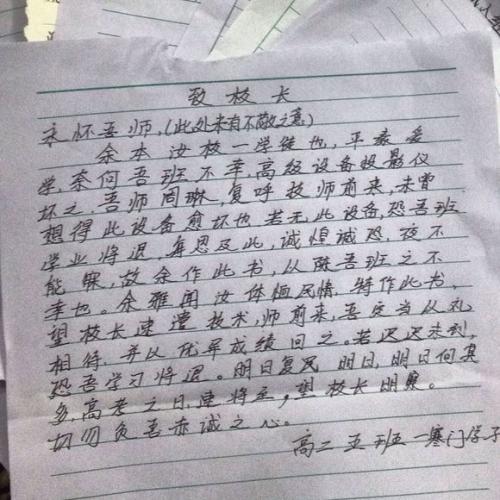 致校长
宋怀吾师,(此处未有不敬之意)
余本汝校一学徒也,平素爱
学,奈何吾班不幸,高级设备投影仪
坏之,吾师周琳,复呼技师前来,未曾
想得此设备愈坏也,若无此设备,恐吾班
学业将退,每思及此,诚惶诚恐,夜不
能寐,故余作此书,以陈吾班之不
幸也。余雅闻汝体恤民情,特作此书,
望校长速遣技术师前来,吾定当以礼
相待,并以优异成绩回之。若迟迟未到,
恐吾学习将退。明日复明日,明日何其
多,高考之日速将至,望校长明察。
切勿负吾赤诚之心。
高二五班一寒门学子